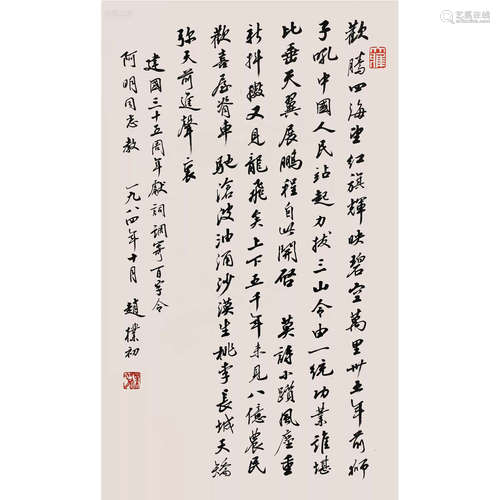 歡騰四海望紅旗輝映碧空萬里卅五年前獅
子吼中國人民站起力拔三山令由一統功業誰堪
比垂天翼展鵬程自此開啓 莫訝小躓風塵重
新抖擻又見龍飛矣上下五千年未見八億農民
歡喜屋脊車馳滄波油湧沙漠生桃李長城天矯
弥天前進聲裏
建國三十五周年獻詞調寄百字令
阿明同志教 一九八四年十月 趙樸初